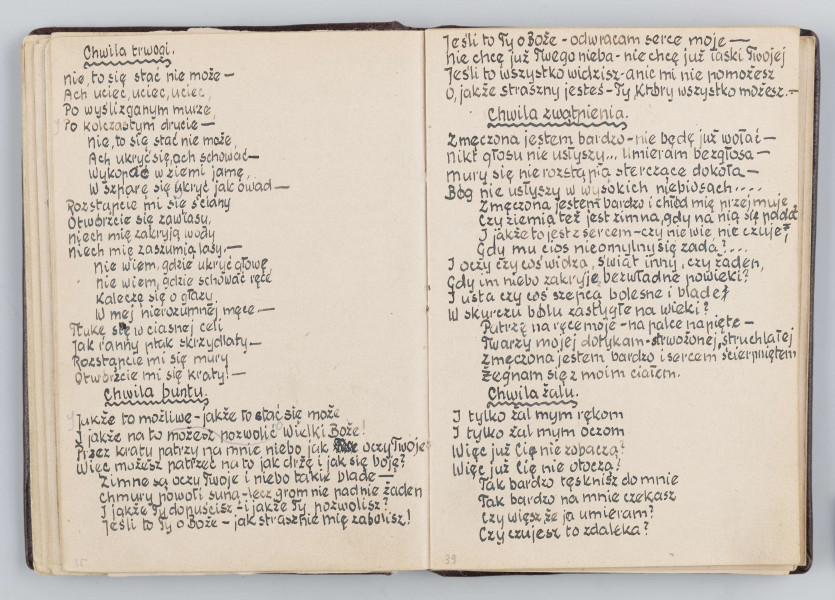 Chwila trwogi.
Nie, to się stać nie może —
Ach uciec, uciec, uciec,
Po wyślizganym murze,
Po kolczastym drucie —
Nie, to się stać nie może,
Ach ukryć się, ach schować —
Wykopać w ziemi jamę,
W szparę się ukryć jak owad —
Rozstąpcie mi się ściany
Otwórzcie się zawiasy,
Niech mię zakryją wody
Niech mię zaszumią lasy, —
Nie wiem, gdzie ukryć głowę
Nie wiem, gdzie schować ręce
Kaleczę się o głazy
W mej nierozumnej męce —
Tłukę się w ciasnej celi
Jak ranny ptak skrzydlaty —
Rozstąpcie mi się mury
Otwórzcie mi się kraty! —
Chwila buntu.
Jakże to możliwe - jakże to stać się może
I jakże na to możesz pozwolić Wielki Boże!
Przez kraty patrzy na mnie niebo jak oczy Twoje
Więc możesz patrzeć na to jak drżę i jak się boję?
Zimne są oczy Twoje i niebo takie blade —
Chmury powoli suną - lecz grom nie padnie żaden
I jakże Ty dopuścisz - i jakże Ty pozwolisz?
Jeśli to Ty o Boże - jak strasznie mię zabolisz!
35
Jeśli to Ty o Boże - odwracam serce moje —
Nie chcę już Twego nieba - nie chcę już łaski Twojej
Jeśli to wszystko widzisz - a nic mi nie pomożesz
O, jakże straszny jesteś - Ty, który wszystko możesz. —
Chwila zwątpienia.
Zmęczona jestem bardzo - nie będę już wołać —
Nikt głosu nie usłyszy... Umieram bezgłosa —
Mury się nie rozstąpią sterczące dokoła —
Bóg nie usłyszy w wysokich niebiosach....
Zmęczona jestem bardzo i chłód mię przejmuje,
Czy ziemia też jest zimna, gdy na nią się pada?
I jakże to jest z sercem - czy nie wie, nie czuje,
Gdy mu cios nieomylny się zada?...
I oczy czy coś widzą, świat inny, czy żaden,
Gdy im niebo zakryje, bezwładne powieki?
I usta czy coś szepcą bolesne i blade,
W skurczu bólu zastygłe na wieki?
Patrzę na ręce moje - na palce napięte —
Twarzy mojej dotykam - strwożonej, struchlałej
Zmęczona jestem bardzo i sercem ścierpniętem
Żegnam się z moim ciałem.
Chwila żalu.
I tylko żal mym rękom
I tylko żal mym oczom
Więc już Cię nie zobaczą?
Więc już Cię nie otoczą?
Tak bardzo tęsknisz do mnie
Tak bardzo na mnie czekasz
Czy wiesz, że ja umieram?
Czy czujesz to zdaleka?
39